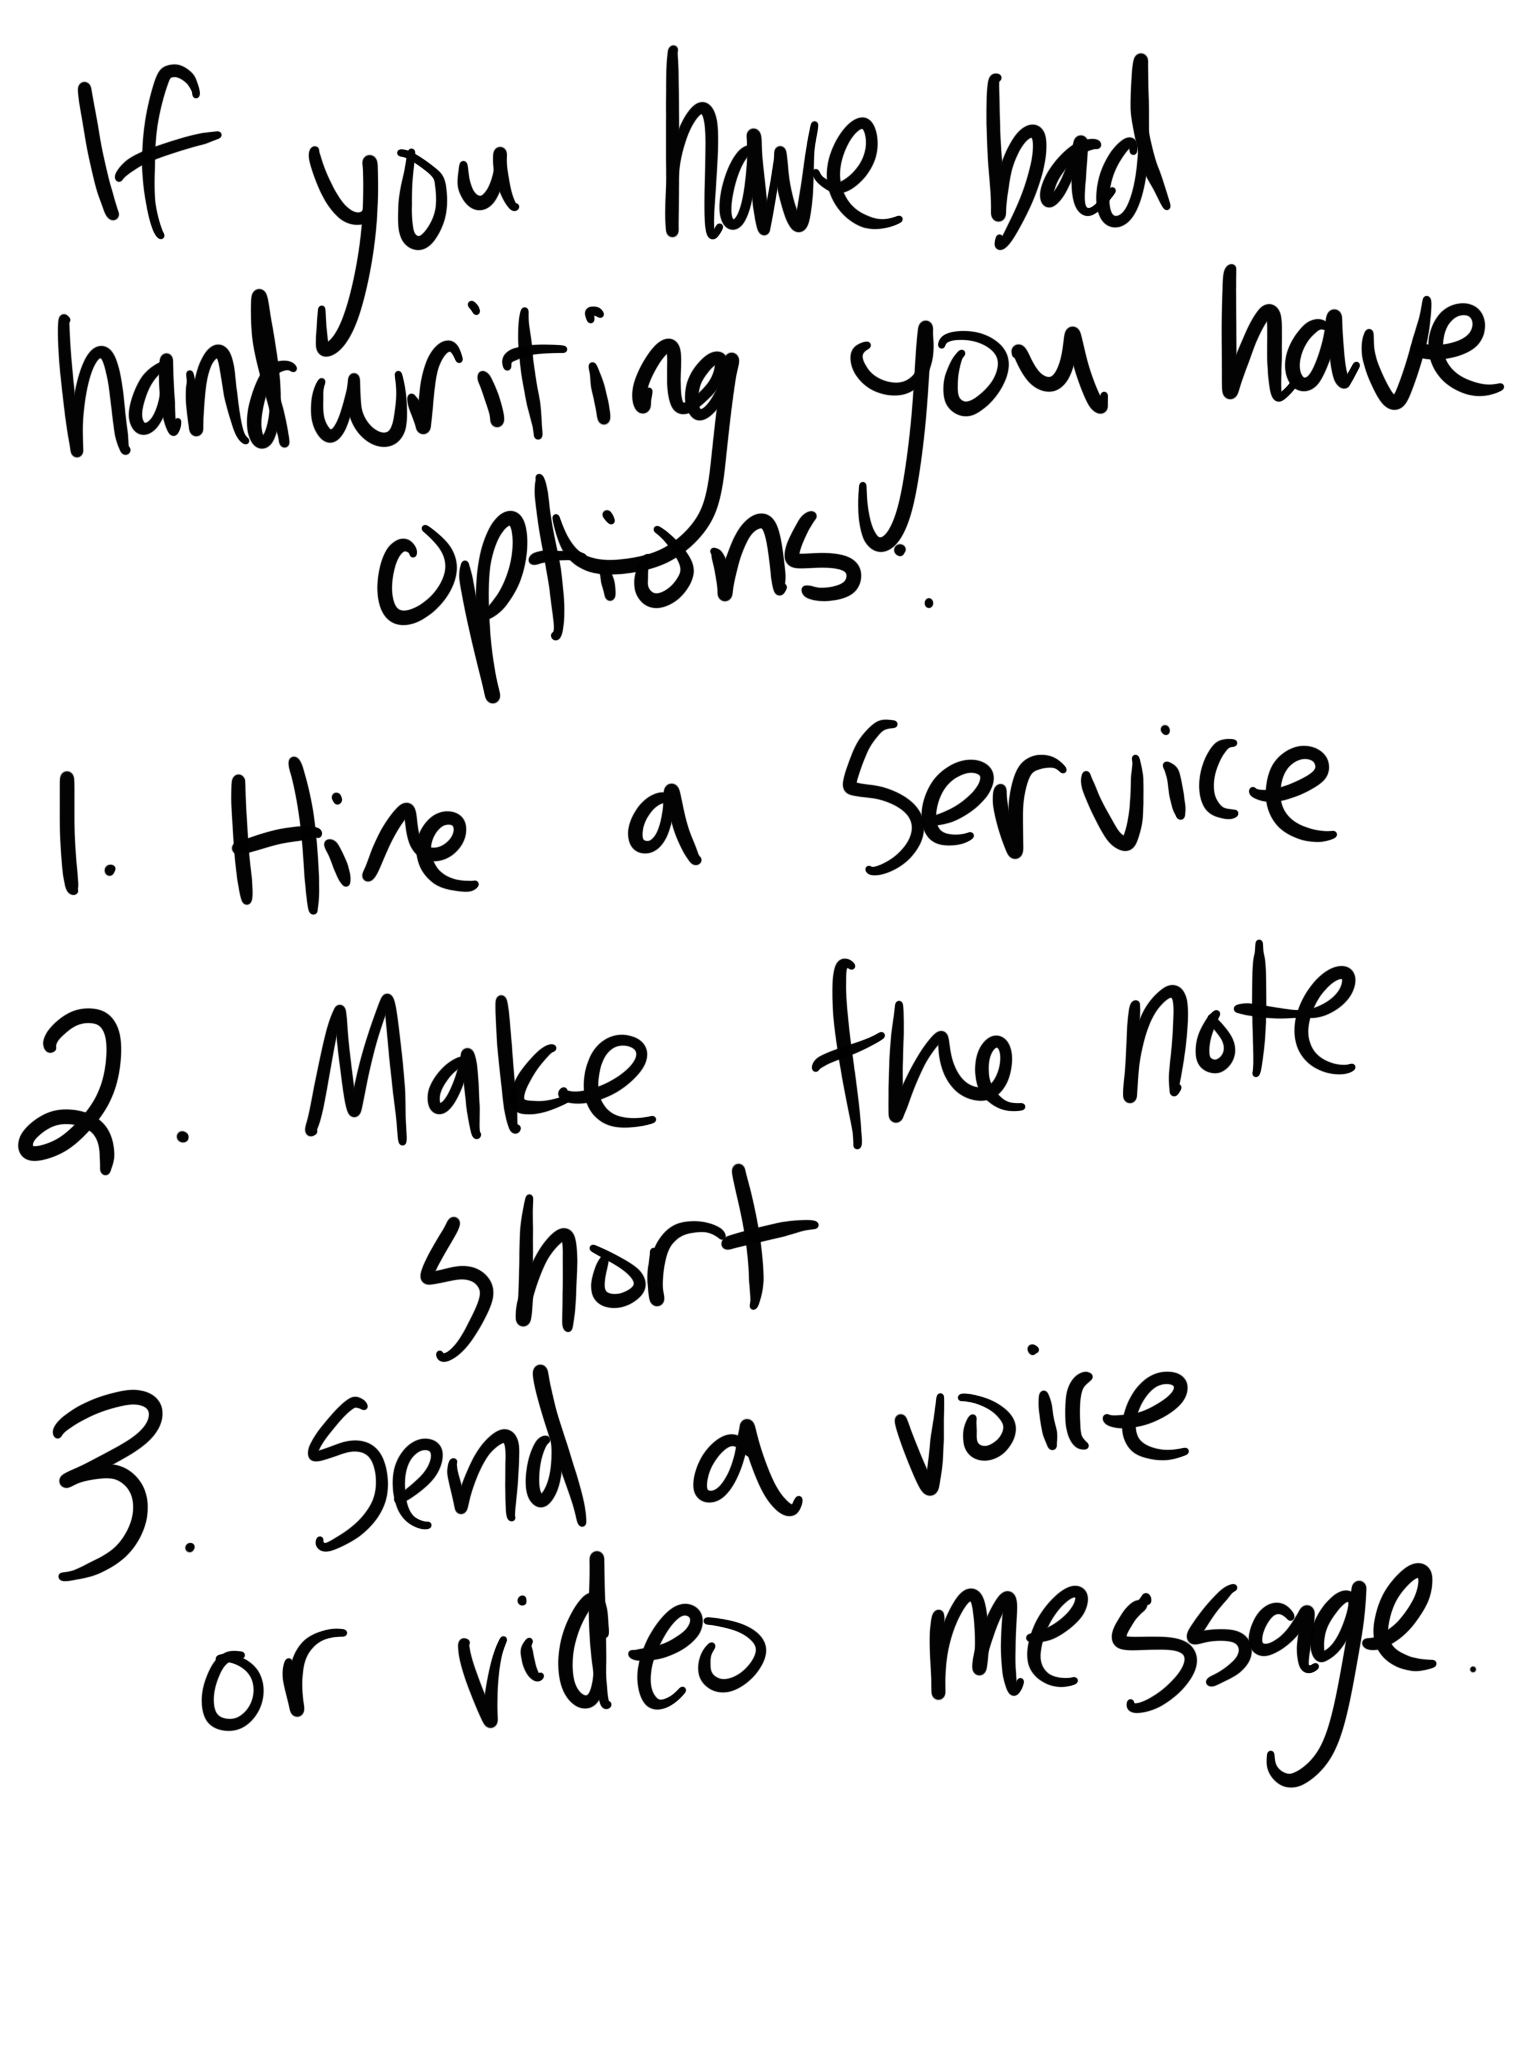 If you have bad
handwriting you have
options:
1. Hire a service
2. Make the note
short
3. Send a voice
or video message.